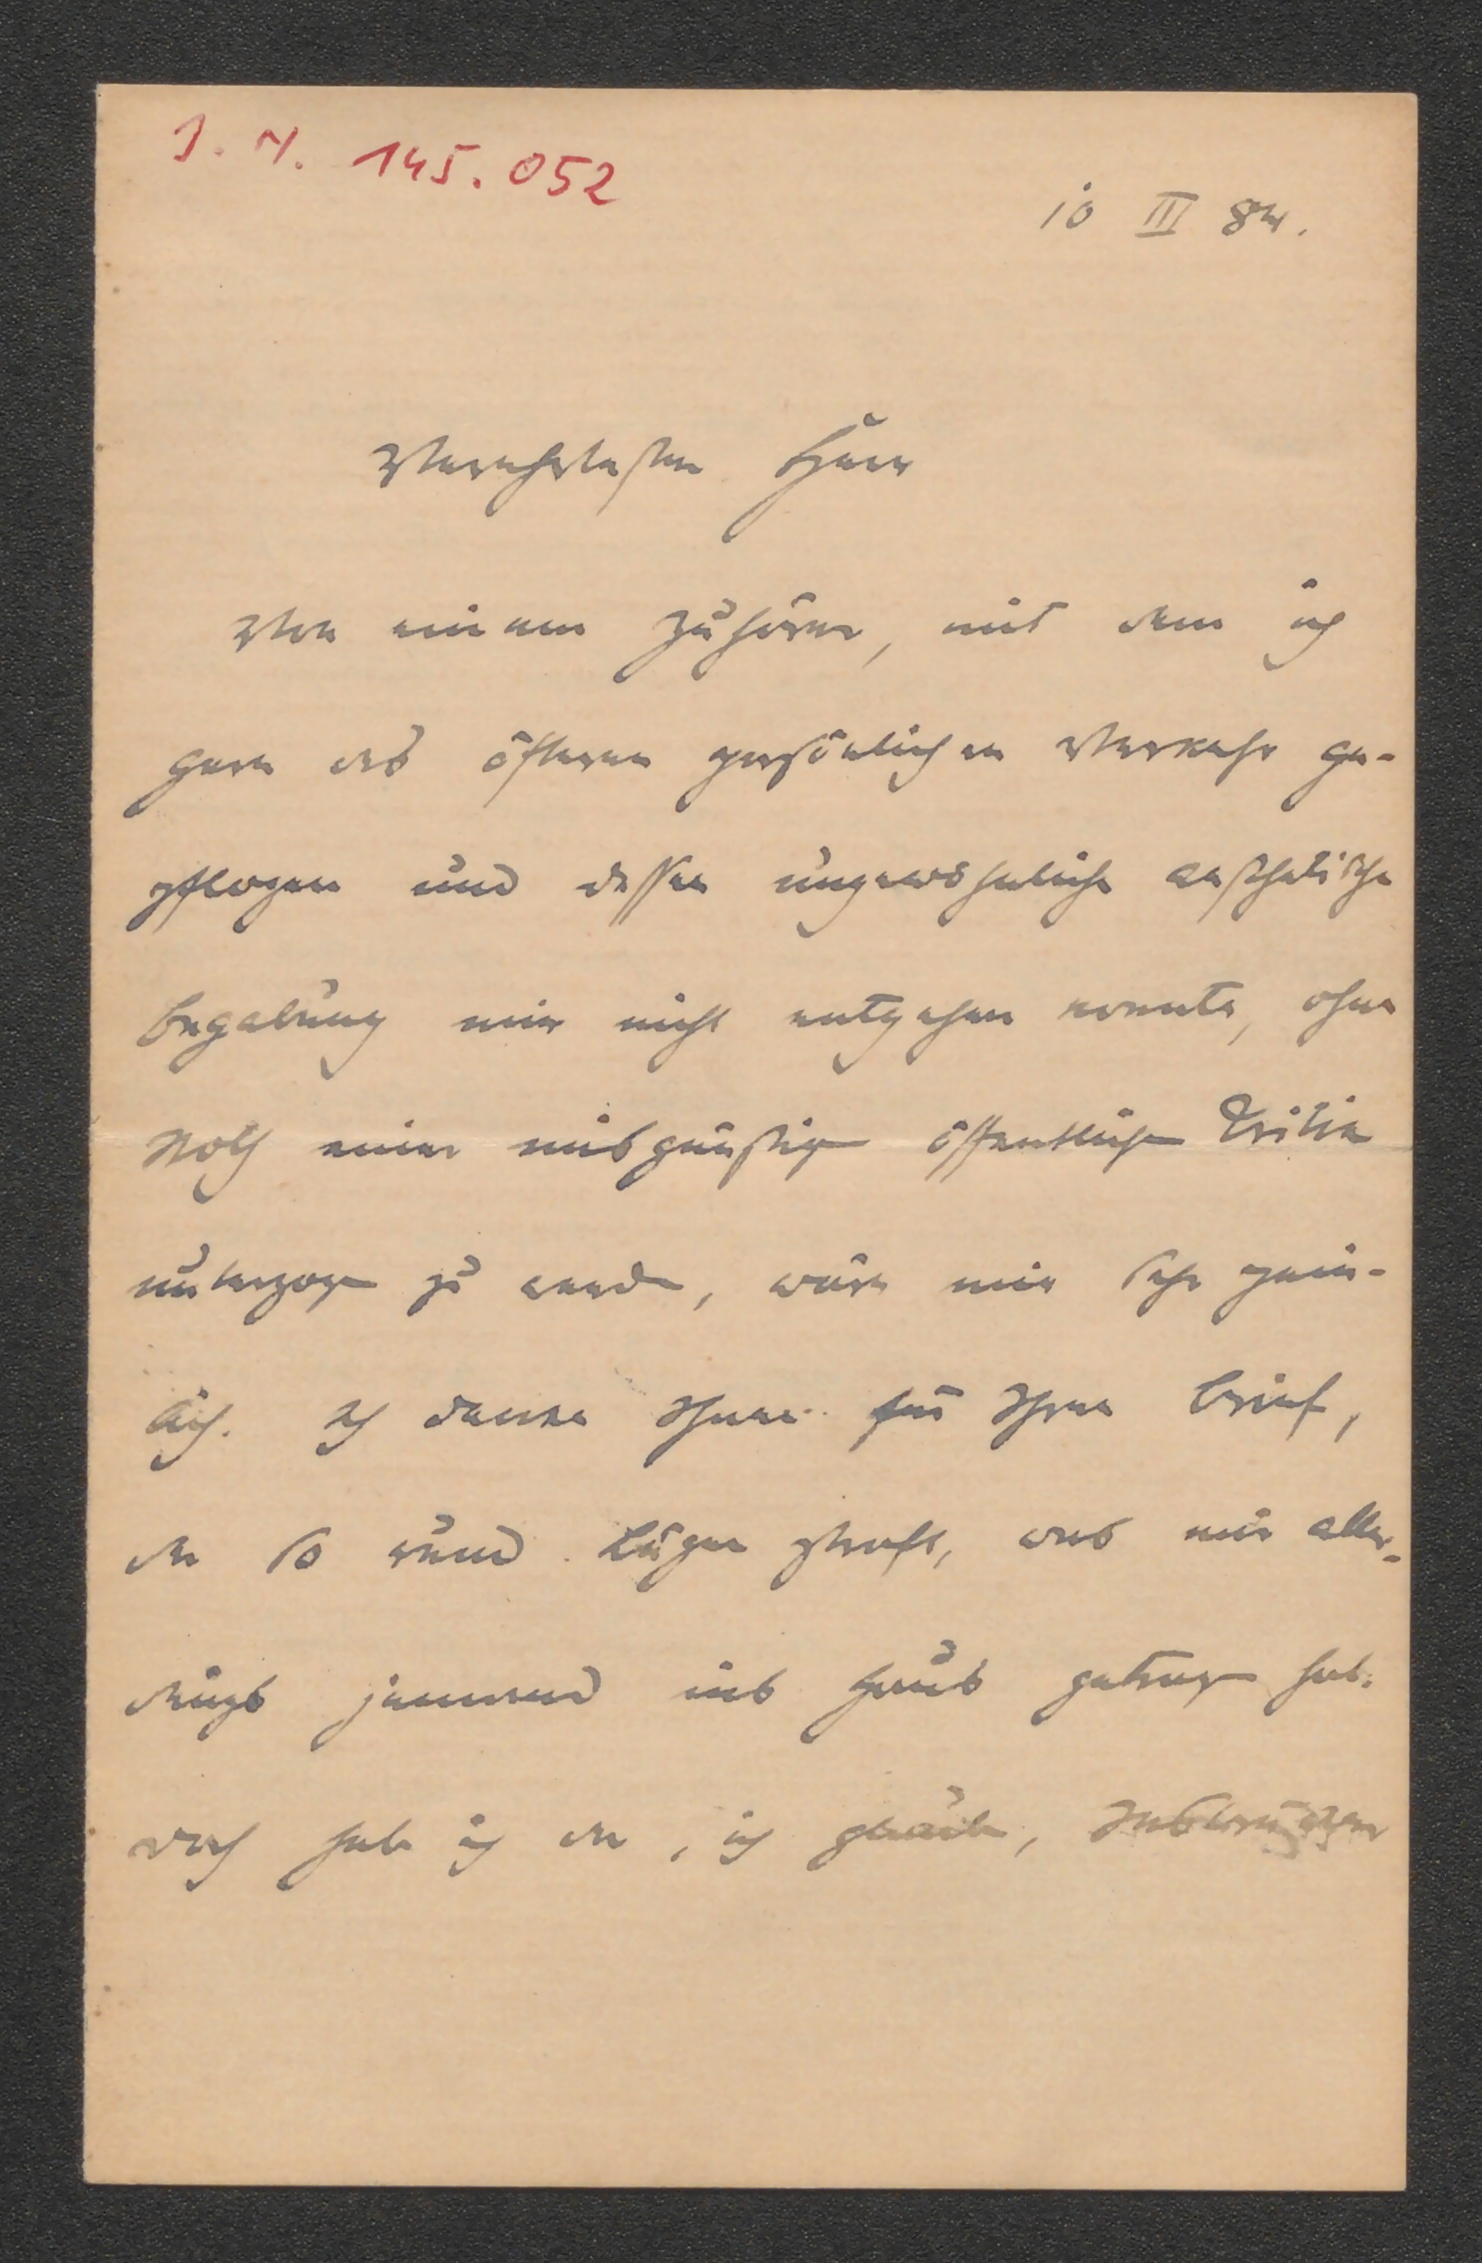 J. N. 145.052
10 III 84.
Verehrtester Herr
Von einem Zuhörer, mit dem ich
gern des öfteren persönlichen Verkehr ge-
pflogen und dessen ungewöhnliche aesthetische
Begabung mir nicht entgehen konnte, ohne
Noth einer misgünstigen öffentlichen Kritik
unterzogen zu werden, wäre mir sehr pein-
lich. Ich danke Ihnen für Ihren Brief,
der so rund Lügen straft, was mir aller-
dings jemand ins Haus getragen hat.
Doch habe ich den, ich glaube, Innsbrucker